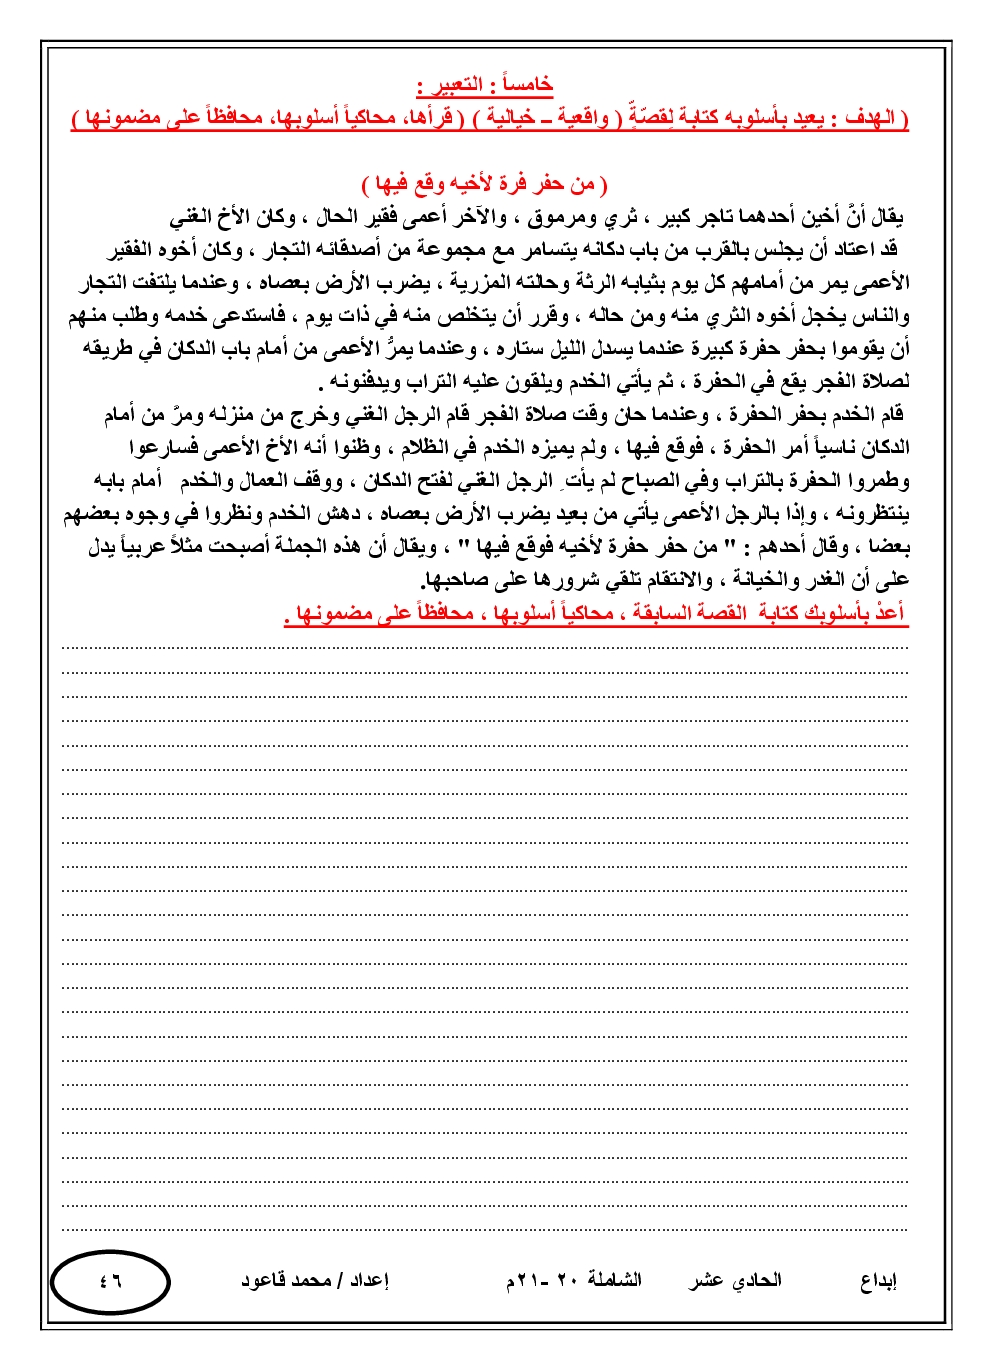 خامساً : التعبير :
( الهدف : يعيد بأسلوبه كتابة لِقصّةٍ ( واقعية – خيالية ) ( قرأها، محاكياً أسلوبها، محافظاً على مضمونها )
( من حفر فرة لأخيه وقع فيها )
يقال أنَّ أخين أحدهما تاجر كبير ، ثري ومرموق ، والآخر أعمى فقير الحال ، وكان الأخ الغني
قد اعتاد أن يجلس بالقرب من باب دكانه يتسامر مع مجموعة من أصدقائه التجار ، وكان أخوه الفقير
الأعمى يمر من أمامهم كل يوم بثيابه الرثة وحالته المزرية ، يضرب الأرض بعصاه ، وعندما يلتفت التجار
والناس يخجل أخوه الثري منه ومن حاله ، وقرر أن يتخلص منه في ذات يوم ، فاستدعى خدمه وطلب منهم
أن يقوموا بحفر حفرة كبيرة عندما يسدل الليل ستاره ، وعندما يمرُّ الأعمى من أمام باب الدكان في طريقه
لصلاة الفجر يقع في الحفرة ، ثم يأتي الخدم ويلقون عليه التراب ويدفنونه .
قام الخدم بحفر الحفرة ، وعندما حان وقت صلاة الفجر قام الرجل الغني وخرج من منزله ومرَّ من أمام
الدكان ناسياً أمر الحفرة ، فوقع فيها ، ولم يميزه الخدم في الظلام ، وظنوا أنه الأخ الأعمى فسارعوا
وطمروا الحفرة بالتراب وفي الصباح لم يأتِ الرجل الغني لفتح الدكان ، ووقف العمال والخدم أمام بابه
ينتظرونه ، وإذا بالرجل الأعمى يأتي من بعيد يضرب الأرض بعصاه ، دهش الخدم ونظروا في وجوه بعضهم
بعضا ، وقال أحدهم : " من حفر حفرة لأخيه فوقع فيها " ، ويقال أن هذه الجملة أصبحت مثلاً عربياً يدل
على أن الغدر والخيانة ، والانتقام تلقي شرورها على صاحبها.
أعدْ بأسلوبك كتابة القصة السابقة ، محاكياً أسلوبها ، محافظاً على مضمونها .
إبداع الحادي عشر الشاملة ٢٠ -٢١م إعداد / محمد قاعود ٤٦